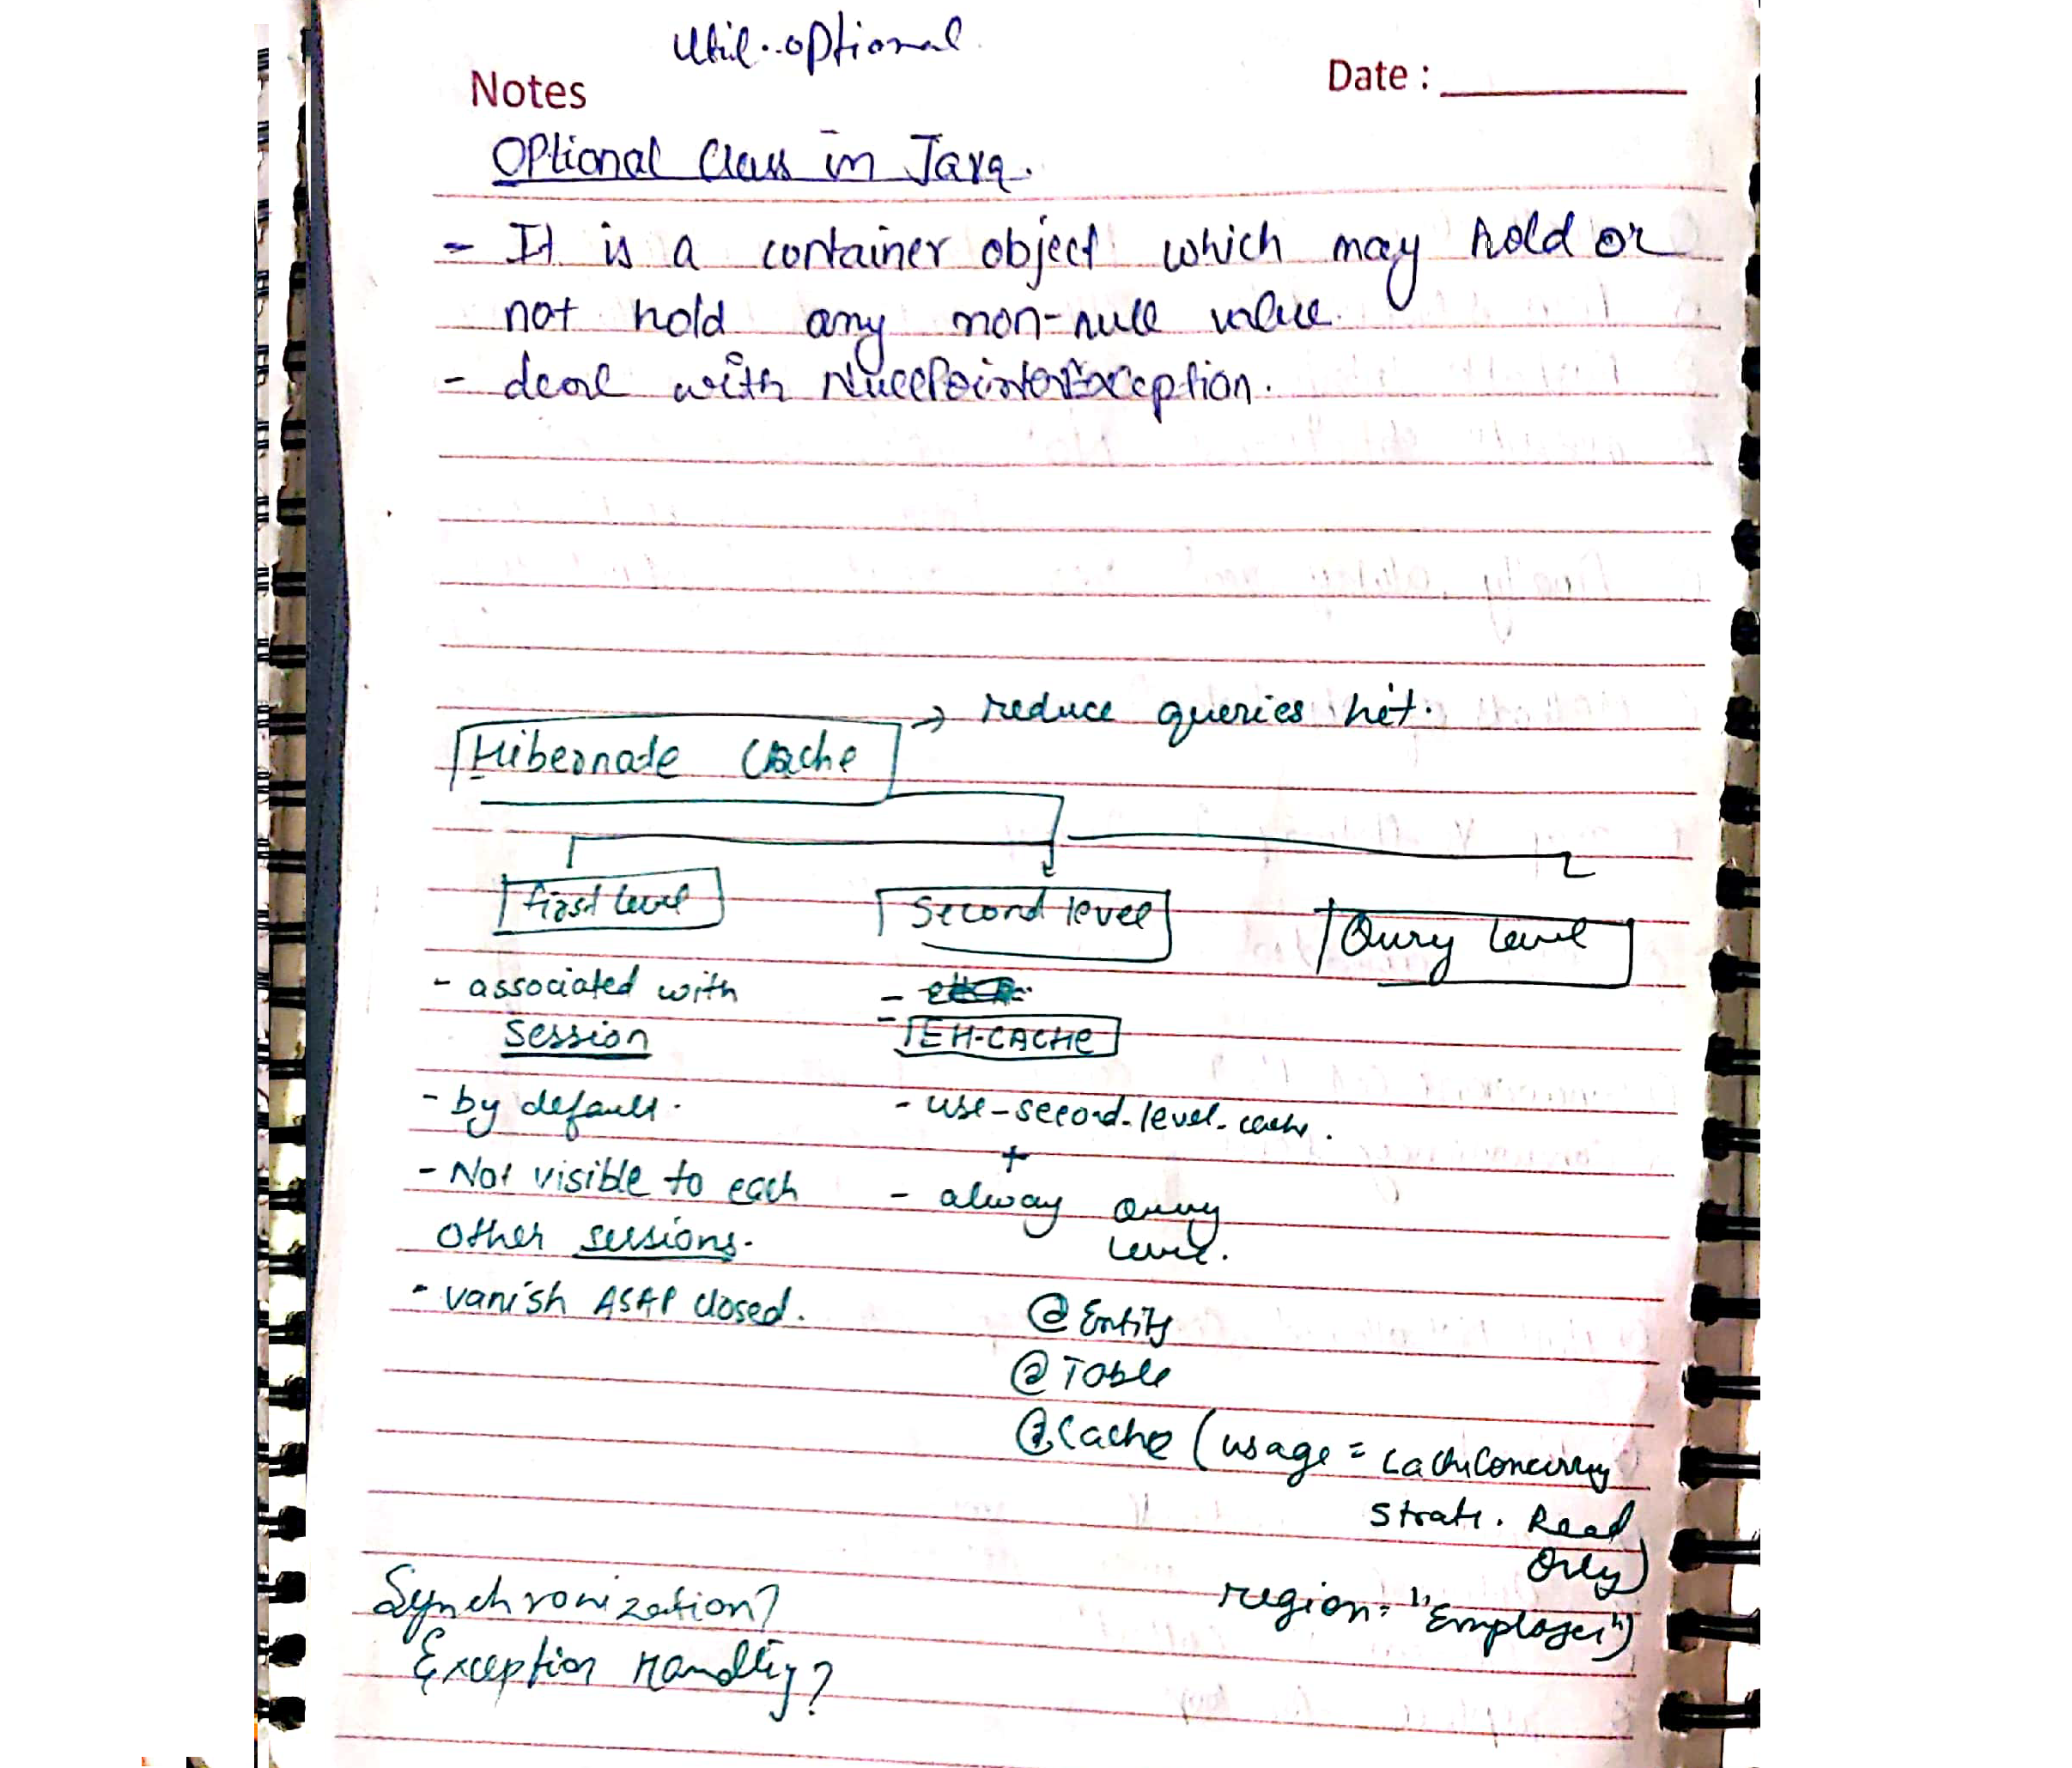 Util..optional
Notes
Date :
Optional Class in Java.
- It is a container object which may hold or
not hold any non-null value.
- deal with NullPointerException.
→ reduce queries hit.
Hibernate Cache
first level
Second level
Qury level
- associated with
Session
- by default.
- Not visible to each
other sessions.
- vanish ASAP closed.
-
- EH-CACHE
- use-second-level-cache.
+
- alway Qury
level.
@Entity
@Table
@Cache (usage = CachConcurrny
Strate. Read
Only)
region= "Employee")
Synchronization?
Exception Handling?